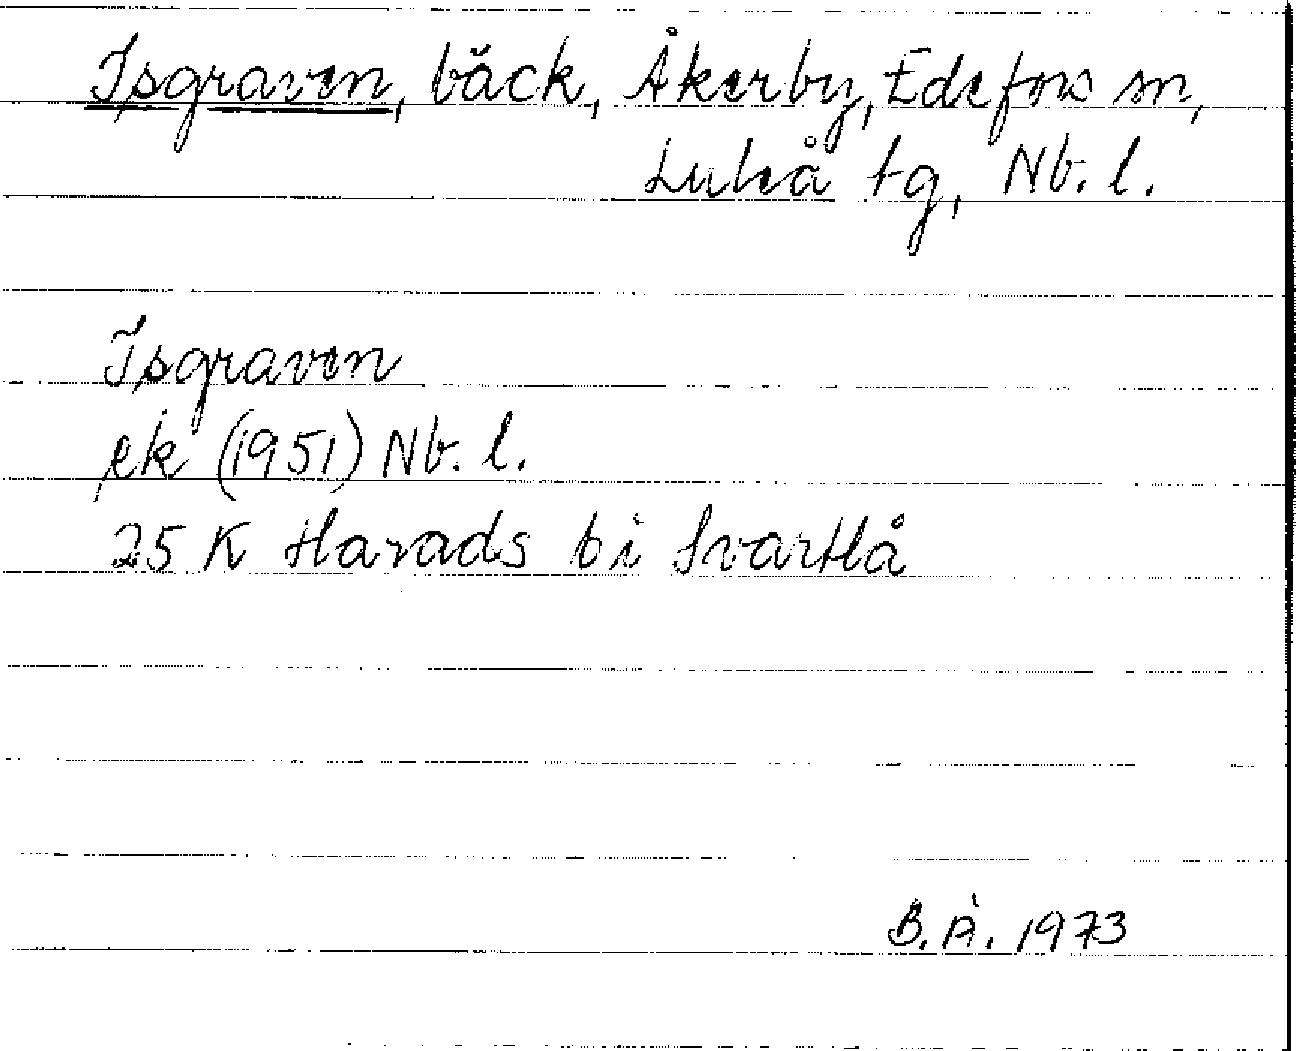 Isgraven, bäck, Åkerby, Edefors sn,
Luleå tg, Nb. l.
Isgraven
ek (1951) Nb. l.
25 K Harads b i Svartlå
B.Å. 1973